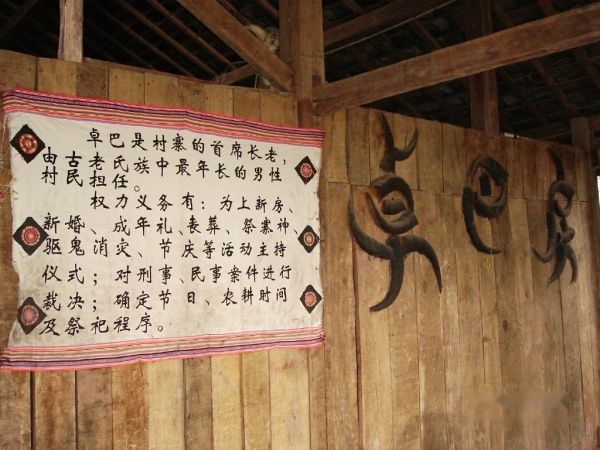 卓巴是村寨的首席长老，
由古老氏族中最年长的男性
村民担任。
权力义务有：为上新房、
新婚、成年礼、丧葬、祭寨神、
驱鬼消灾、节庆等活动主持
仪式；对刑事、民事案件进行
裁决；确定节日、农耕时间
及祭祀程序。